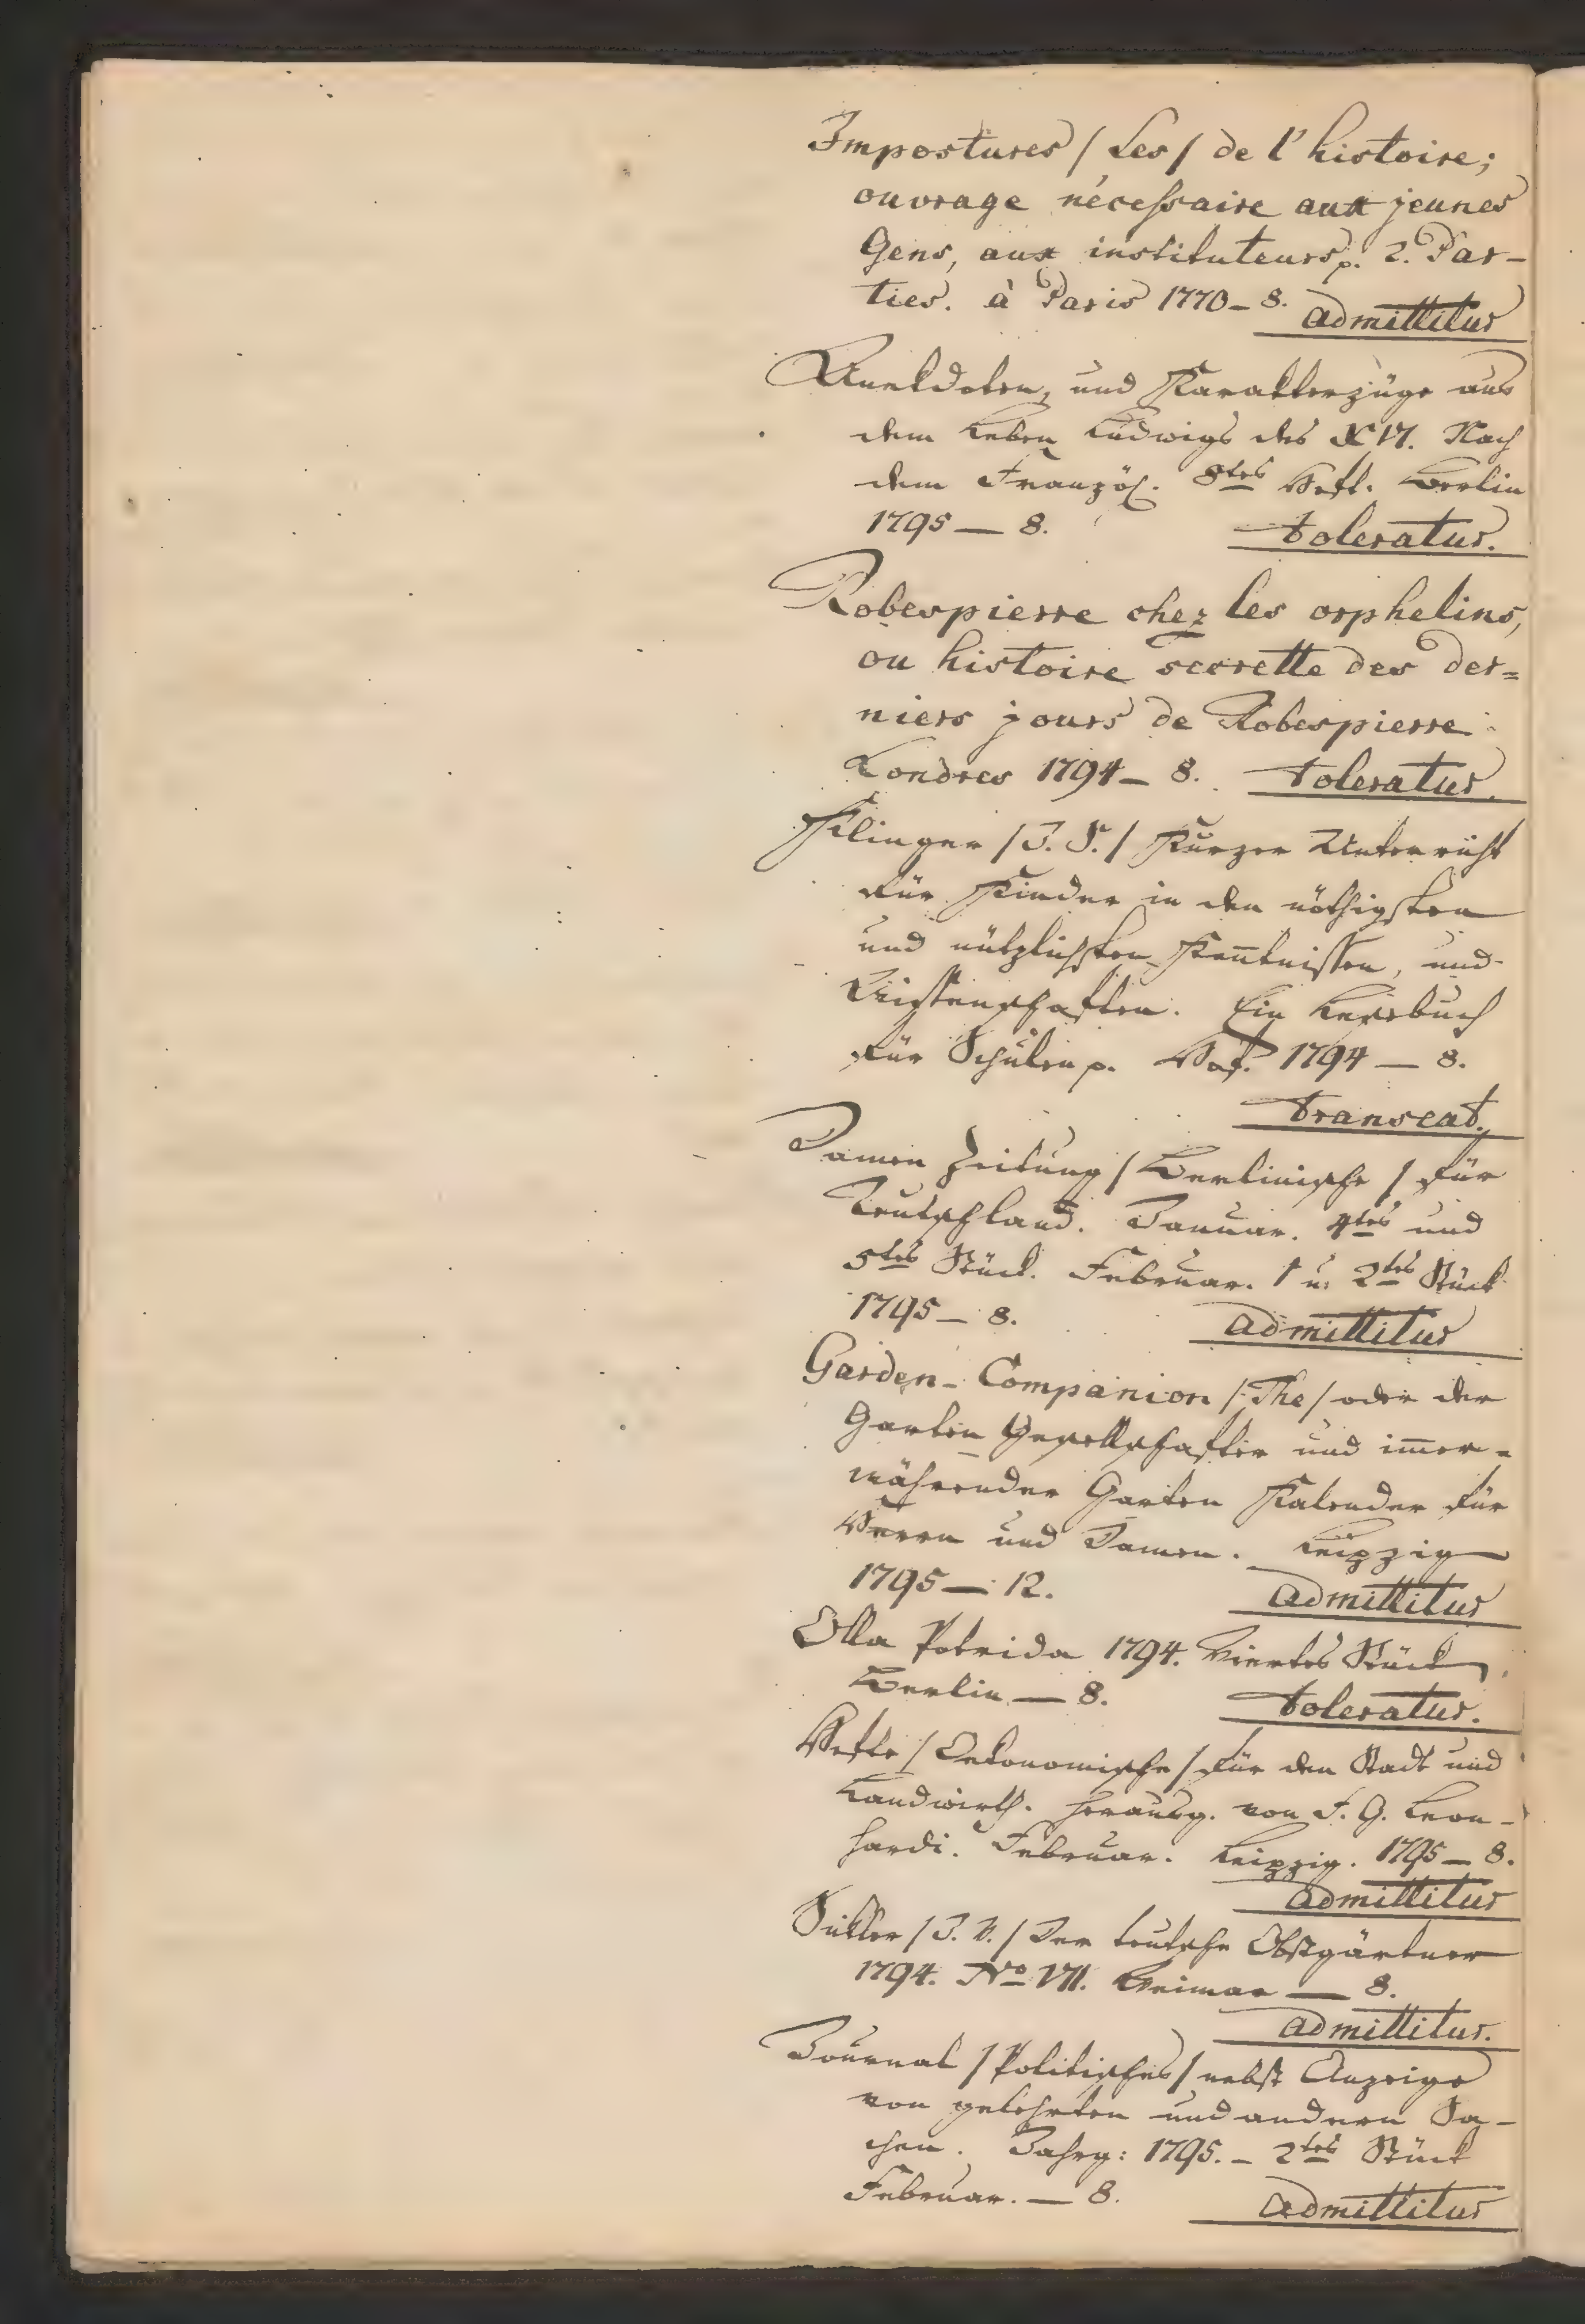 Impostures /Les/ de l'histoire;
ouvrage nécessaire aux jeunes
Gens, aux instituteurs p. 2. Par-
ties. à Paris 1770 – 8. admittitur
Anekdoten, und Karakterzüge aus
dem Leben Ludwigs des XVI. Nach
dem Französ. 8tes Heft. Berlin
1795 — 8. toleratur.
Robespierre chez les orphelins,
ou histoire secrette des der=
niers jours de Robespierre
Londres 1794 – 8. toleratur.
Klinger /J. S./ Kurzer Unterricht
für Kinder in den nöthigsten
und nützlichsten Kenntnissen, und
Wissenschaften. Ein Lesebuch
für Schulen p. Hof. 1794 — 8.
transeat.
Damen Zeitung /Berlinische/ für
Teutschland. Januar. 4tes und
5tes Stück. Februar. 1 u. 2tes Stück
1795 – 8. admittitur
Garden-Companion /The/ oder der
Garten Gesellschafter und im̅er-
währender Garten Kalender für
Herrn und Damen. Leipzig
1795 — 12. admittitur
Olla Potrida 1794. Viertes Stück
Berlin — 8. toleratur.
Hefte /Oekonomische/ für den Stadt und
Landwirth. herausg. von F. G. Leon-
hardi. Februar. Leipzig. 1795 – 8.
admittitur
Sickler /J. V./ Der teutsche Obstgärtner
1794. No VII. Weimar — 8.
admittitur.
Journal /Politisches/ nebst Anzeige
von gelehrten und andern Sa-
chen. Jahrg: 1795. – 2tes Stück
Februar. — 8. admittitur